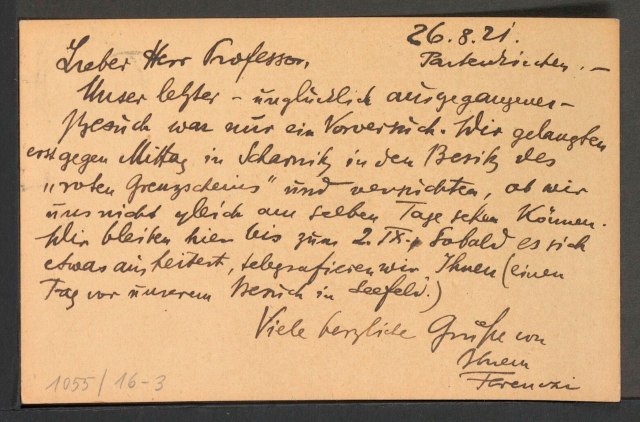 26.8.21.
Partenkirchen.–
Lieber Herr Professor,
Unser letzter – unglücklich ausgegangener –
Besuch war nur ein Vorversuch. Wir gelangten
erst gegen Mittag in Scharnitz in den Besitz des
„roten Grenzscheins" und versuchten, ob wir
uns nicht gleich am selben Tage sehen können.
Wir bleiben hier bis zum 2. IX. Sobald es sich
etwas ausheitert, telegrafieren wir Ihnen (einen
Tag vor unserem Besuch in Seefeld.)
Viele herzliche Grüße von
Ihrem
Ferenczi
1055/16-3